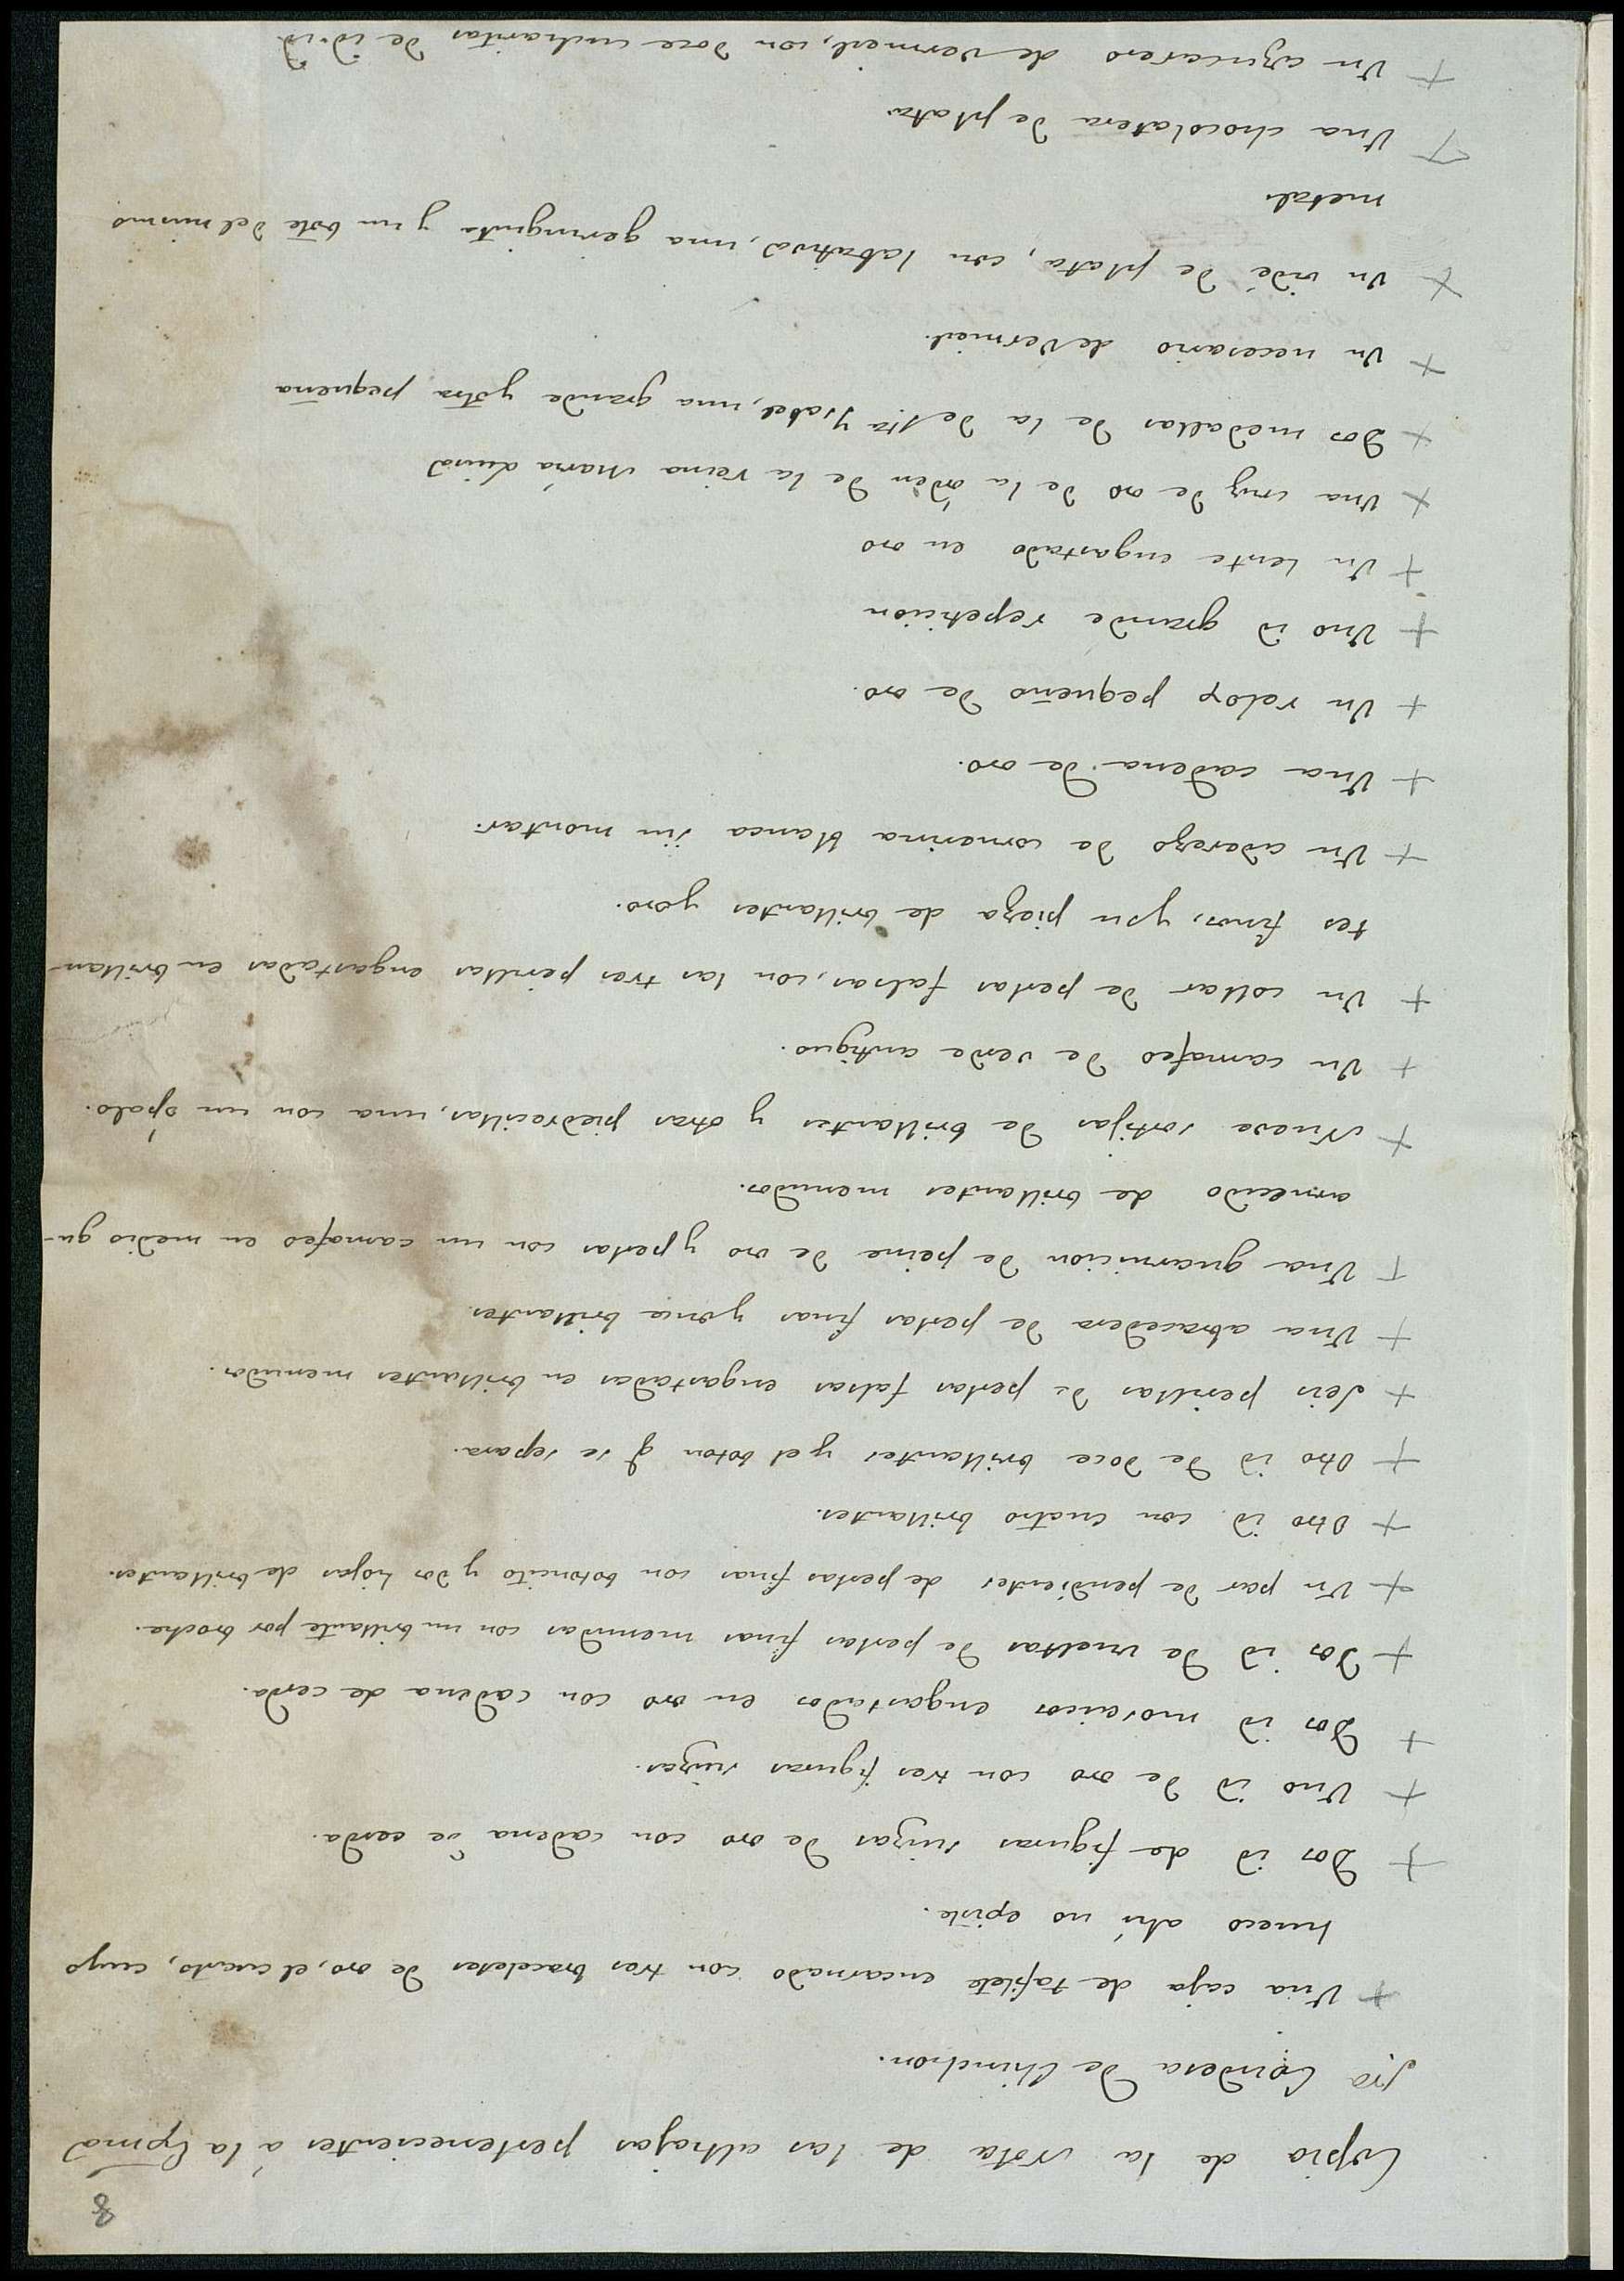 8
Copia de la Nota de las alhajas pertenecientes á la Exma
Sra Condesa de Chinchon.
+ Una caja de tafilete encarnado con tres braceletes de oro, el cuarto, cuyo
hueco ahí no existe.
+ Dos id de figuras suizas de oro con cadena de cerda.
+ Uno id de oro con tres figuras suizas.
+ Dos id mosaicos engastados en oro con cadena de cerda.
+ Dos id de vueltas de perlas finas menudas con un brillante por broche.
+ Un par de pendientes de perlas finas con botoncito y dos hojas de brillantes.
+ Otro id. con cuatro brillantes.
+ Otro id de doce brillantes y el boton q se separa.
+ Seis perillas de perlas falsas engastadas en brillantes menudos.
+ Una abracedera de perlas finas y once brillantes
+ Una guarnicion de peine de oro y perlas con un camafeo en medio gu-
arnecido de brillantes menudos.
+ Nueve sortijas de brillantes y otras piedrecillas, una con un ópalo.
+ Un camafeo de verde antiguo.
+ Un collar de perlas falsas, con las tres perillas engastadas en brillan-
tes finos, y su pieza de brillantes y oro.
+ Un aderezo de cornerina blanca sin montar.
+ Una cadena de oro.
+ Un relox pequeño de oro.
+ Uno id grande repeticion
+ Un lente engastado en oro
+ Una cruz de oro de la órden de la reina María Luisa
+ Dos medallas de la de Sta Ysabel, una grande y otra pequeña
+ Un necesario de Vermeil.
+ Un vidé de plata, con labativa, una geringuita y un bote del mismo
metal
+ Una chocolatera de plata
+ Un azucarero de vermeil, con doce cucharitas de id. id